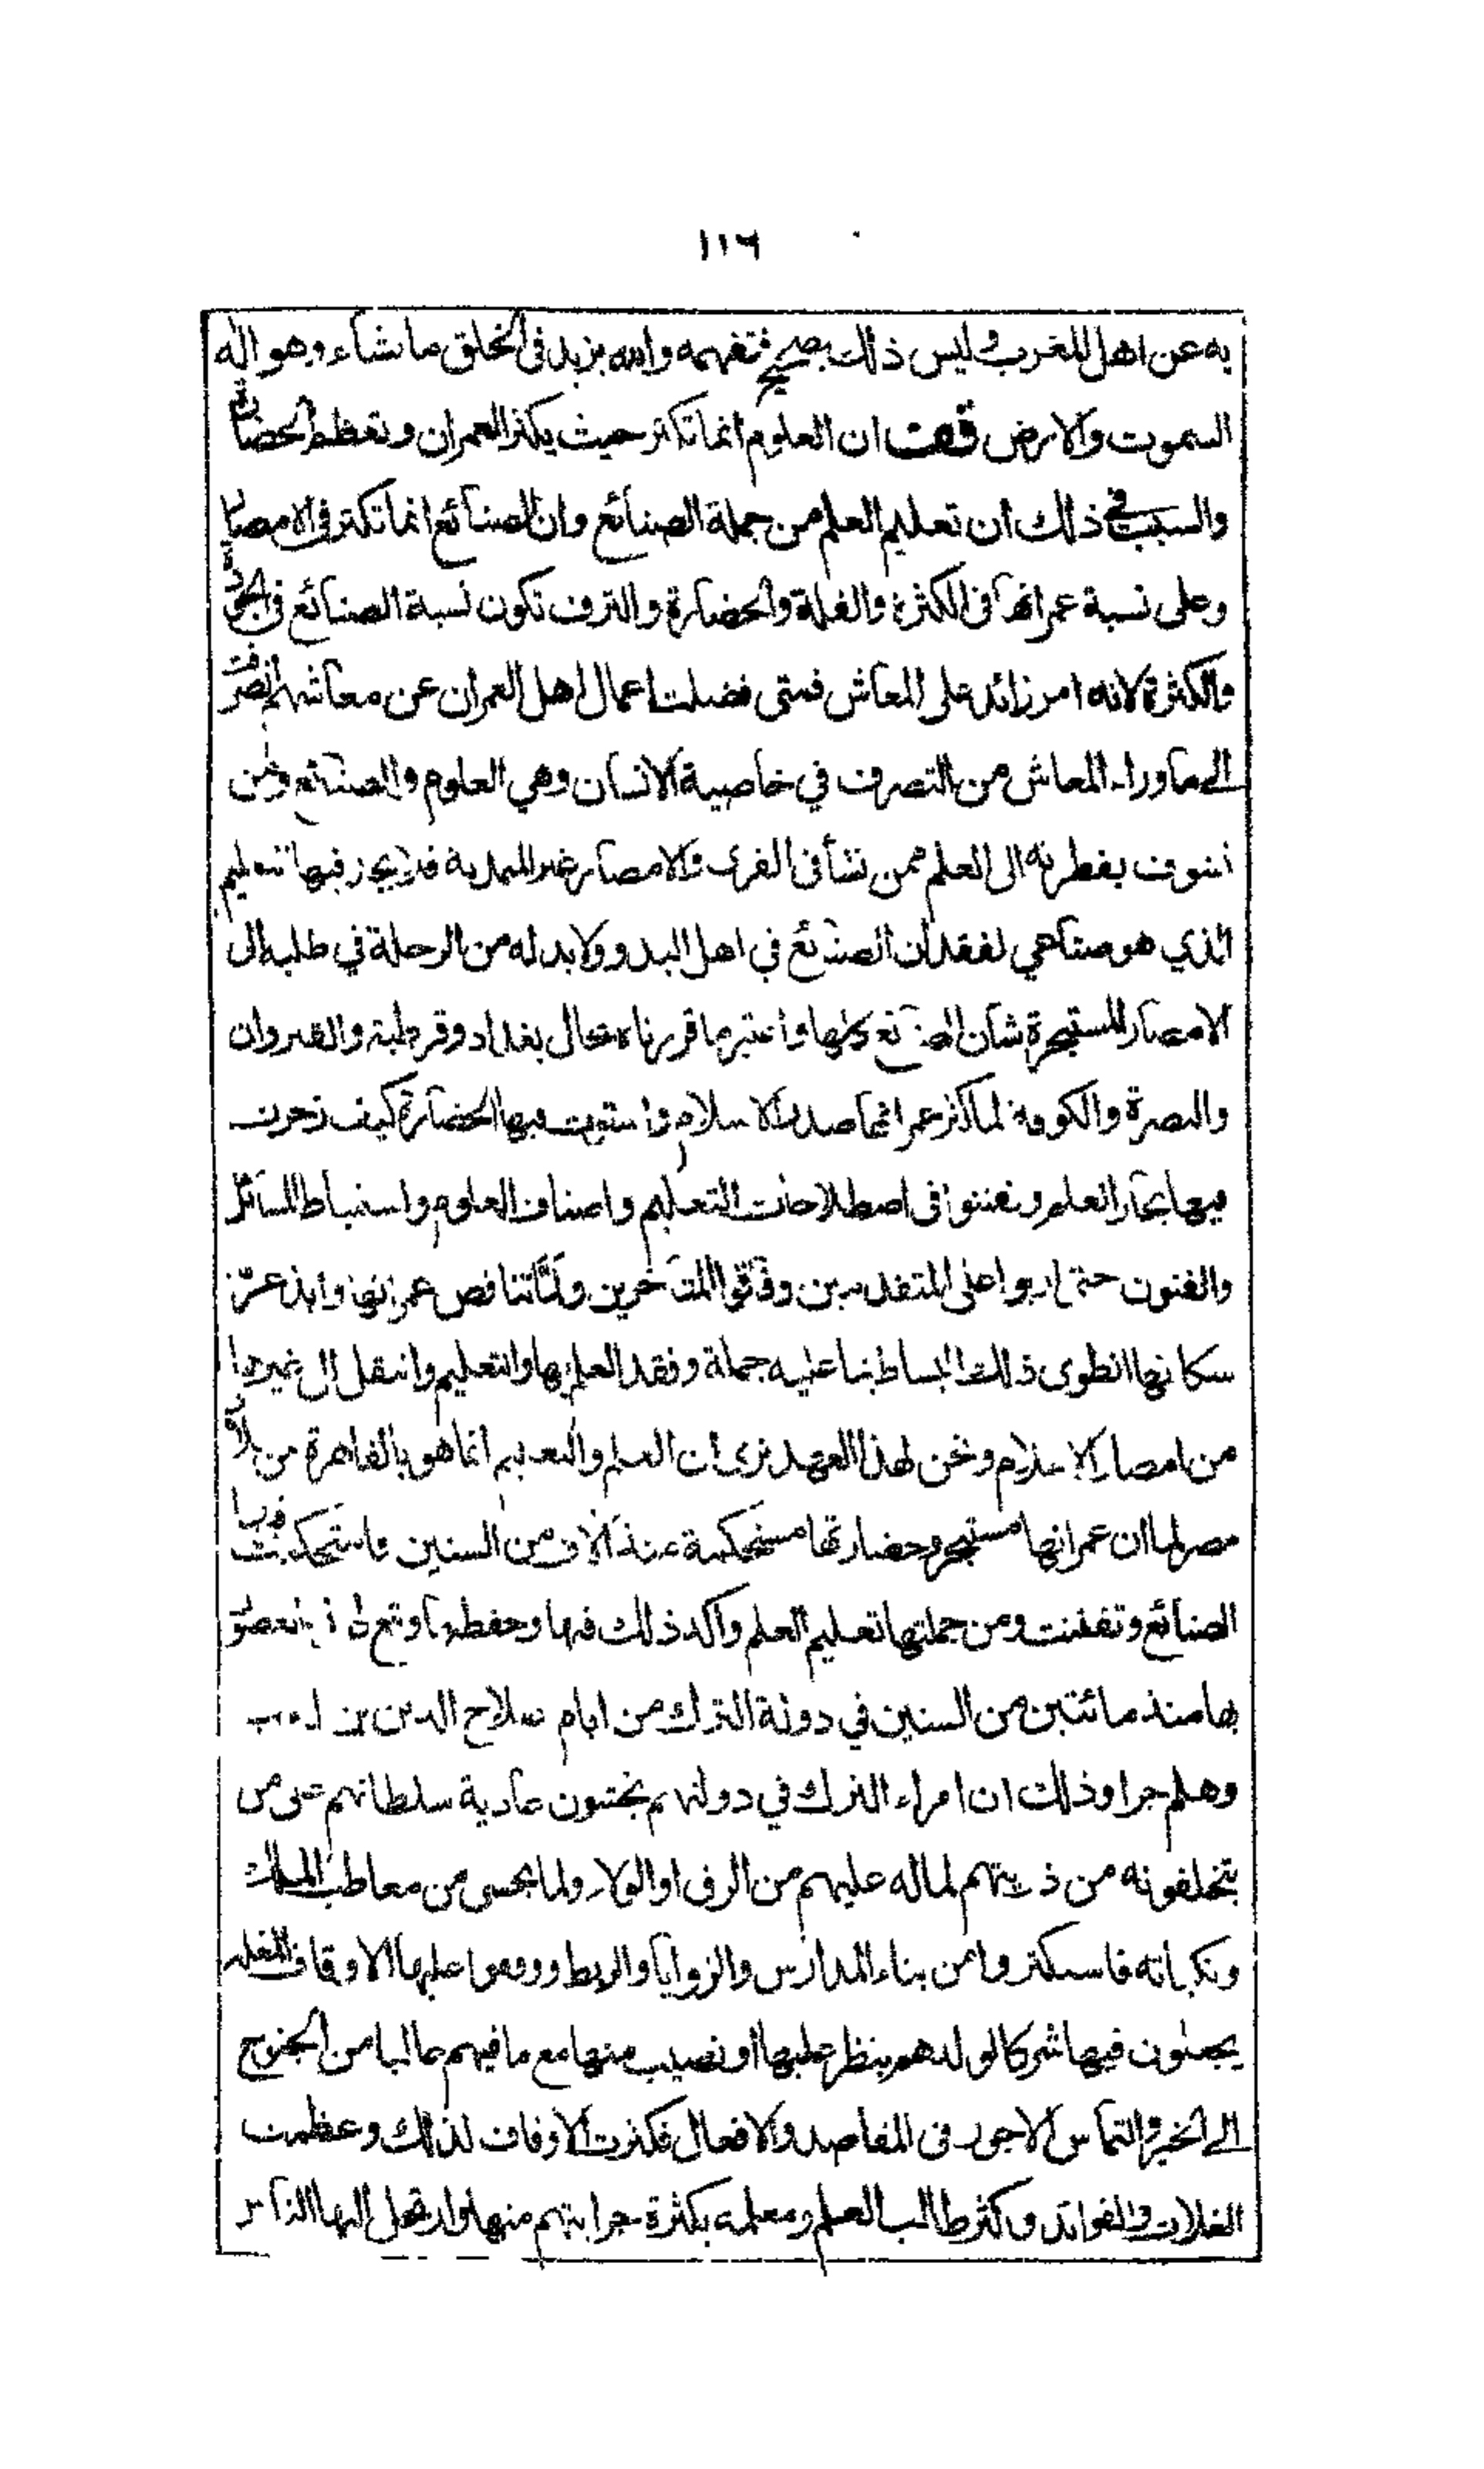 ١١٦
به عن اهل المغرب وليس ذلك بصحيح فتفهمه والله يزيد فى الخلق ما يشاء وهو اله
السموت والارض قعت ان العلوم انما تكثر حيث يكثر العمران وتعظم الحضارة
والسبب في ذلك ان تعليم العلم من جملة الصنائع وان الصنائع انما تكثر فى الامصار
وعلى نسبة عمرانها فى الكثرة والقلة والحضارة والترف تكون نسبة الصنائع فى الجودة
والكثرة لانه امر زائد على المعاش فمتى فضلت اعمال اهل العمران عن معاشهم انصرفت
الى ما وراء المعاش من التصرف في خاصية الانسان وهي العلوم والصنائع ومن
تشوف بفطرته الى العلم ممن نشأ فى القرى والامصار غير المتمدنة فلا يجد فيها تعليم
الذي هو صناعي لفقدان الصنائع في اهل البدو ولا بد له من الرحلة في طلبه الى
الامصار المستبحرة شأن الصنائع كلها واعتبر ما قررناه بحال بغداد وقرطبة والقيروان
والبصرة والكوفة لما كثر عمرانها صدر الاسلام واستوت فيها الحضارة كيف زخرت
فيها بحار العلم وتفننوا فى اصطلاحات التعليم واصناف العلوم واستنباط المسائل
والفنون حتى اربوا على المتقدمين وفاتوا المتأخرين ولما تناقص عمرانها وابذعرّ
سكانها انطوى ذلك البساط بما عليه جملة وفقد العلم بها والتعليم وانتقل الى غيرها
من امصار الاسلام ونحن لهذا العهد نرى ان العلم والتعليم انما هو بالقاهرة من بلاد
مصر لما ان عمرانها مستبحر وحضارتها مستحكمة منذ آلاف من السنين فاستحكمت فيها
الصنائع وتفننت ومن جملتها تعليم العلم واكد ذلك فيها وحفظه ما وقع لهذه العصور
بها منذ مائتين من السنين في دولة الترك من ايام صلاح الدين بن ايوب
وهلم جرا وذلك ان امراء الترك في دولتهم يخشون عادية سلطانهم على من
يتخلفونه من ذريتهم لما له عليهم من الرق او الولاء ولما يخشى من معاطب الملك
ونكباته فاستكثروا من بناء المدارس والزوايا والربط ووقفوا عليها الاوقاف المغلة
يجعلون فيها شركا لولدهم ينظر عليها او نصيب منها مع ما فيهم غالبا من الجنوح
الى الخير والتماس الاجور فى المقاصد والافعال فكثرت الاوقاف لذلك وعظمت
الغلات والفوائد وكثر طالب العلم ومعلمه بكثرة جرايتهم منها وارتحل اليها الناس